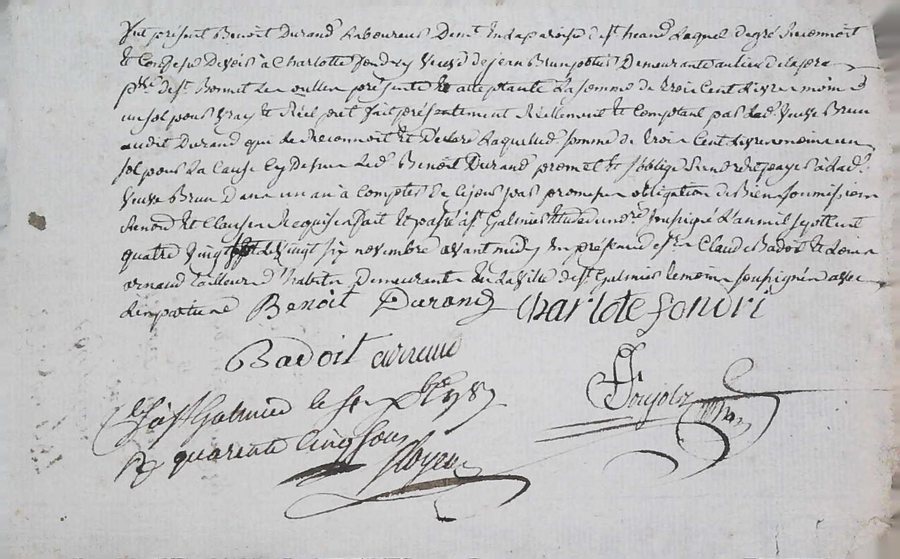 fut présent Benoit Durand Laboureur Demt En La paroisse de st heand Laquel degré Reconnoit
Et Confesse Devoir a Charlotte fondry Veuve de jean Brun potier Demeurante au lieu de
psse de st Bonnet Les oulles presente Et acceptante La somme de trois Cent Livres moins
un sol pour vray Et Réel pret fait présentement Réellement Et Comptant par Lad. Veuve Brun
audit Durand qui Le Reconnoit Et Déclare Laquelle somme de trois Cent Livres moins un
sol pour La Cause Cy Dessus Led. Benoit Durand promet Et soblige Rendre Et payer a Lad.
Veuve Brun dans un an a Compter De Ce jour par promesse obligation de Biens soumissions
Renon Et Clauses Requises fait Et passé a st Galmier Etude du nre soussigné L'an mil sept cent
quatre vingt Le vingt six novembre avant midy En présence de sr Claude Badoit Et Louis
arnaud tailleur d'habits Demeurants En La ville de st Galmier témoins soussignés avec
Les parties Benoit Durand Charlote fondri
Badoit arnaud
Clé a st Galmier le
Rç quarente cinq sous